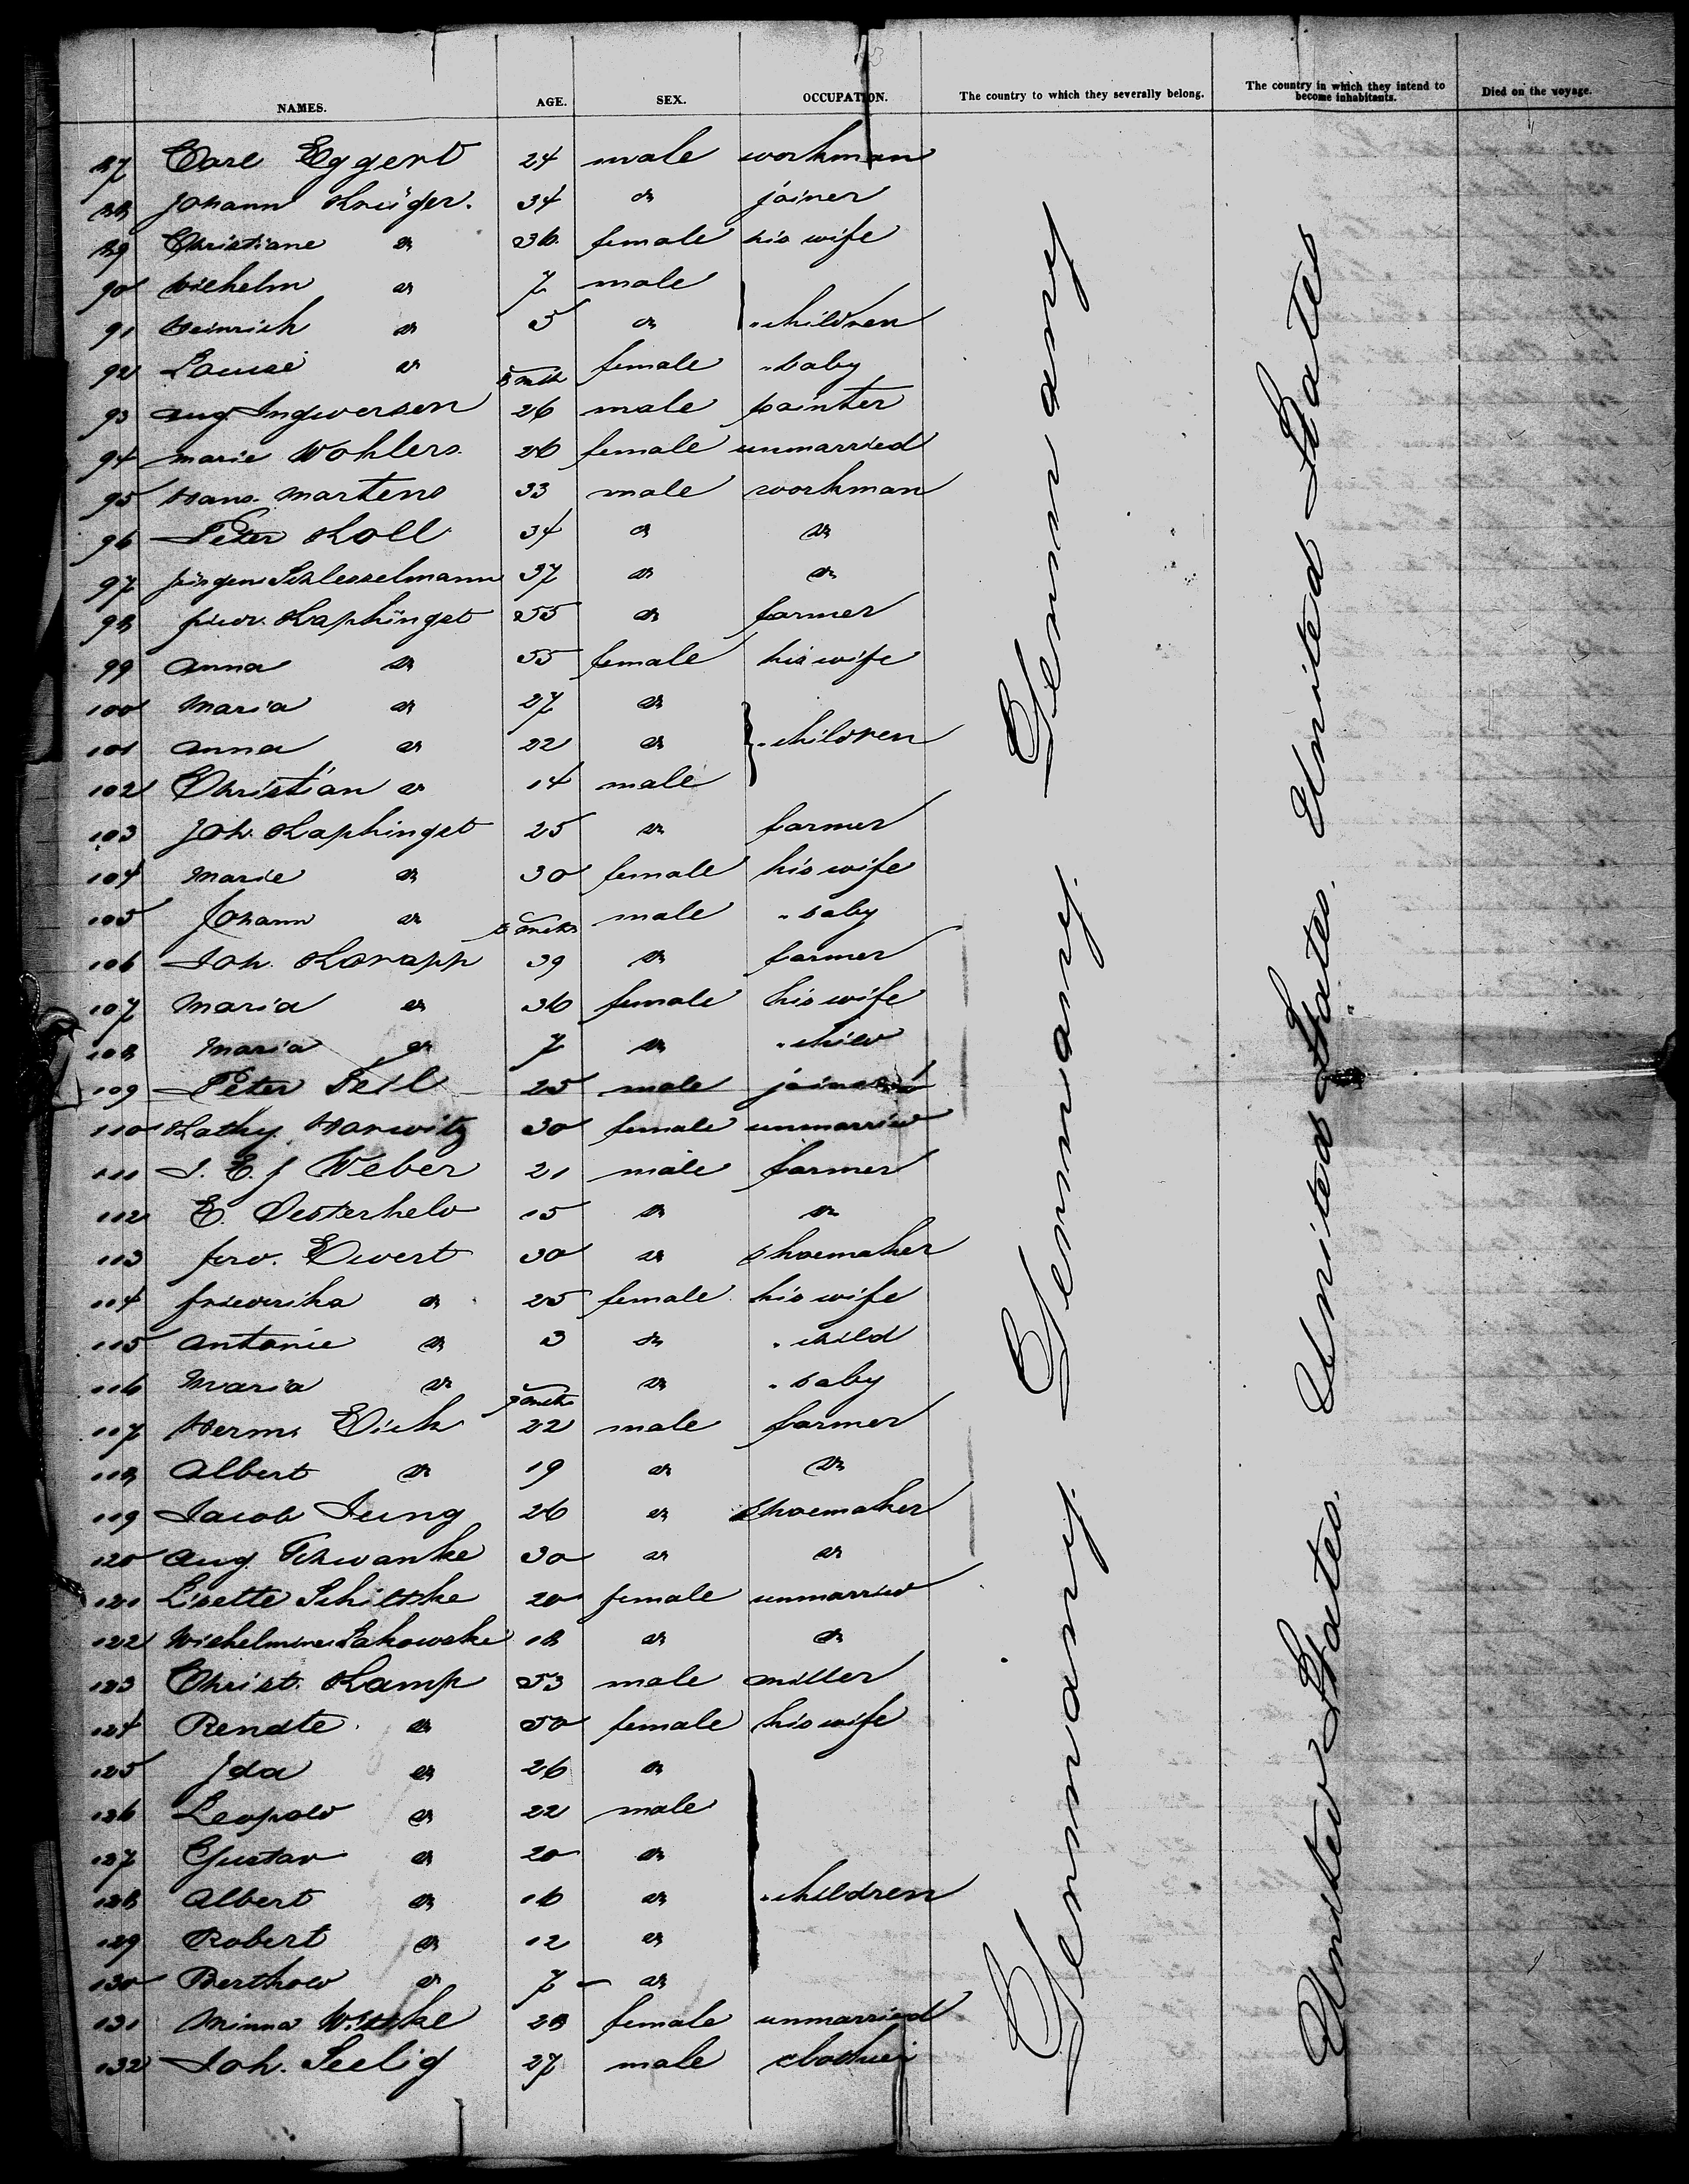 NAMES. AGE. SEX. OCCUPATION. The country to which they severally belong. The country in which they intend to become inhabitants. Died on the voyage.
87 Carl Eggert 24 male workman
88 Johann Krüger. 34 do joiner
89 Christiane do 36 female his wife
90 Wilhelm do 7 male
91 Heinrich do 5 do " children
92 Louise do mth female " baby
93 Aug. Ingwersen 26 male painter
94 Marie Wohlers 26 female unmarried
95 Hans Martens 33 male workman
96 Peter Koll 34 do do
97 Jürgen Schlesselmann 37 do do
98 Kaphingst 55 do farmer
99 Anna do 55 female his wife
100 Maria do 27 do
101 Anna do 22 do " children
102 Christian do 14 male
103 Joh. Kaphingst 25 do farmer
104 Marie do 30 female his wife
105 Johann do mths male " baby
106 Joh. 39 do farmer
107 Maria do 36 female his wife
108 Maria do 7 do " child
109 Peter 25 male joiner
110 Kathy Horwitz 30 female unmarried
111 J. E. J Weber 21 male farmer
112 E. Oesterheld 15 do do
113 Ferd. Ewert 30 do shoemaker
114 Friederika do 25 female his wife
115 Antonie do 3 do " child
116 Maria do 9 mths do " baby
117 Herm. Eick 22 male farmer
118 Albert do 19 do do
119 Jacob Jung 26 do shoemaker
120 Aug. Schwanke 30 do do
121 Lisette 20 female unmarried
122 Wilhelmine 18 do do
123 Christ. Kamp 53 male miller
124 Renate do 50 female his wife
125 Ida do 26 do
126 Leopold do 22 male
127 Gustav do 20 do
128 Albert do 16 do " children
129 Robert do 12 do
130 Berthold do 7 do
131 Minna 28 female unmarried
132 Joh. Seelig 27 male
Germany. Germany. Germany
United States. United States. United States